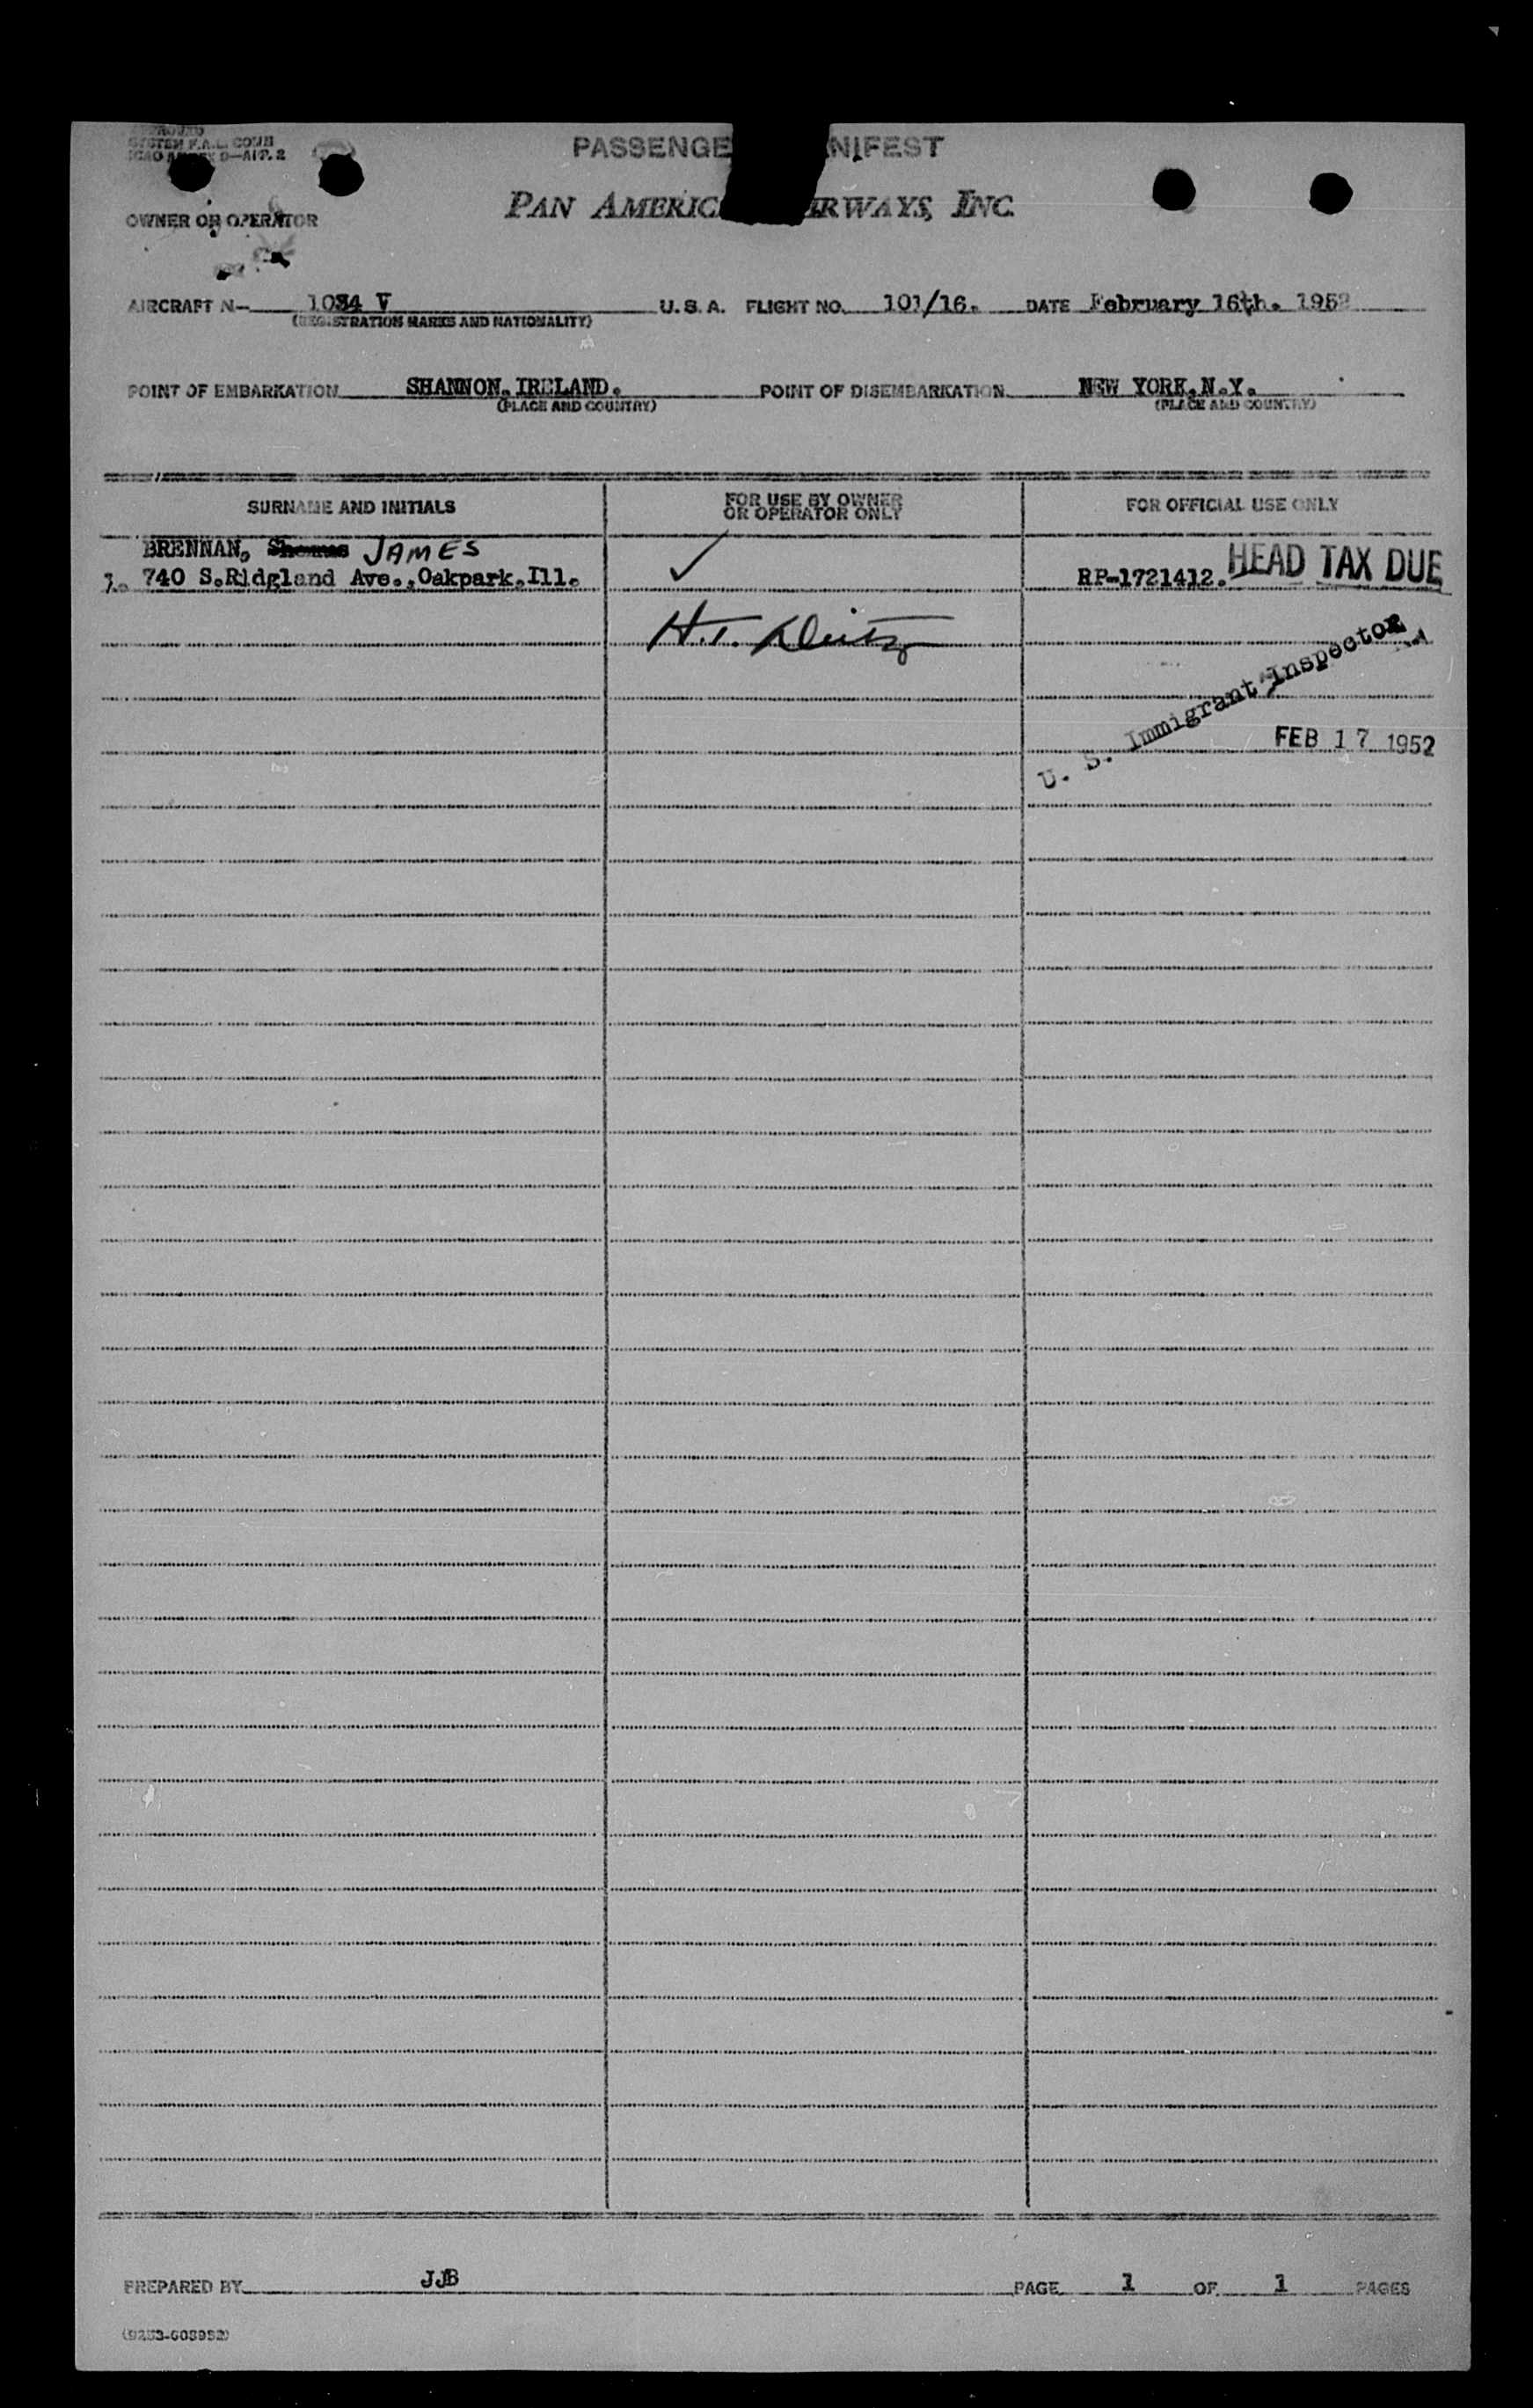 APPROVED
SYSTEM F.A.L. COMM
ICAO ANNEX 9—APP. 2
PASSENGE NIFEST
PAN AMERIC IRWAYS, INC.
OWNER OR OPERATOR
AIRCRAFT N— 1034 V U.S.A. FLIGHT NO. 101/16. DATE February 16th. 1952
(REGISTRATION MARKS AND NATIONALITY)
POINT OF EMBARKATION SHANNON.IRELAND. POINT OF DISEMBARKATION NEW YORK.N.Y.
(PLACE AND COUNTRY) (PLACE AND COUNTRY)
SURNAME AND INITIALS FOR USE BY OWNER OR OPERATOR ONLY FOR OFFICIAL USE ONLY
BRENNAN, JAMES
1. 740 S.Ridgland Ave.,Oakpark.Ill. ✓ RP-1721412. HEAD TAX DUE
H.T.
U. S. Immigrant Inspector
FEB 17 1952
PREPARED BY JJB PAGE 1 OF 1 PAGES